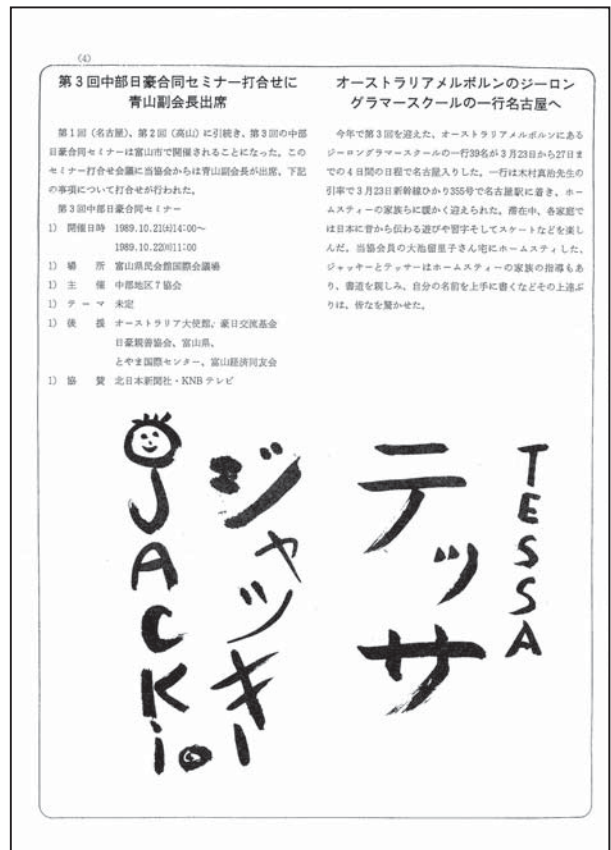 (4)
第3回中部日豪合同セミナー打合せに
青山副会長出席
第1回（名古屋）、第2回（高山）に引続き、第3回の中部
日豪合同セミナーは富山市で開催されることになった。この
セミナー打合せ会議に当協会からは青山副会長が出席、下記
の事項について打合せが行われた。
第3回中部日豪合同セミナー
1) 開催日時 1989.10.21㈯14:00〜
1989.10.22㈰11:00
1) 場 所 富山県民会館国際会議場
1) 主 催 中部地区7協会
1) テ ー マ 未定
1) 後 援 オーストラリア大使館、豪日交流基金
日豪親善協会、富山県、
とやま国際センター、富山経済同友会
1) 協 賛 北日本新聞社・KNBテレビ
オーストラリアメルボルンのジーロン
グラマースクールの一行名古屋へ
今年で第3回を迎えた、オーストラリアメルボルンにある
ジーロングラマースクールの一行39名が3月23日から27日ま
での4日間の日程で名古屋入りした。一行は木村真治先生の
引率で3月23日新幹線ひかり355号で名古屋駅に着き、ホー
ムスティーの家族らに暖かく迎えられた。滞在中、各家庭で
は日本に昔から伝わる遊びや習字そしてスケートなどを楽し
んだ。当協会員の大池留里子さん宅にホームスティした、
ジャッキーとテッサーはホームスティーの家族の指導もあ
り、書道を親しみ、自分の名前を上手に書くなどその上達ぶ
りは、皆なを驚かせた。
TESSA
テッサ
ジャッキー
JACKie